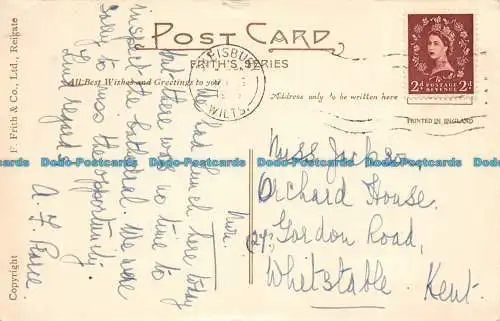 POST CARD
FRITH'S SERIES
All Best Wishes and Greetings to you
Address only to be written here
PRINTED IN ENGLAND
POSTAGE REVENUE
2d 2d
WILTS.
Copyright F. Frith & Co., Ltd., Reigate
We had lunch here today
but there was no time to
inspect the Cathedral. We were
sorry to miss the opportunity.
Kind regards
A. F. Pearce
Miss
Orchard House,
Gordon Road,
Whitstable.
Kent.
Dodo-Postcards Dodo-Postcards Dodo-Postcards Dodo-Postcards Dodo-Postcards